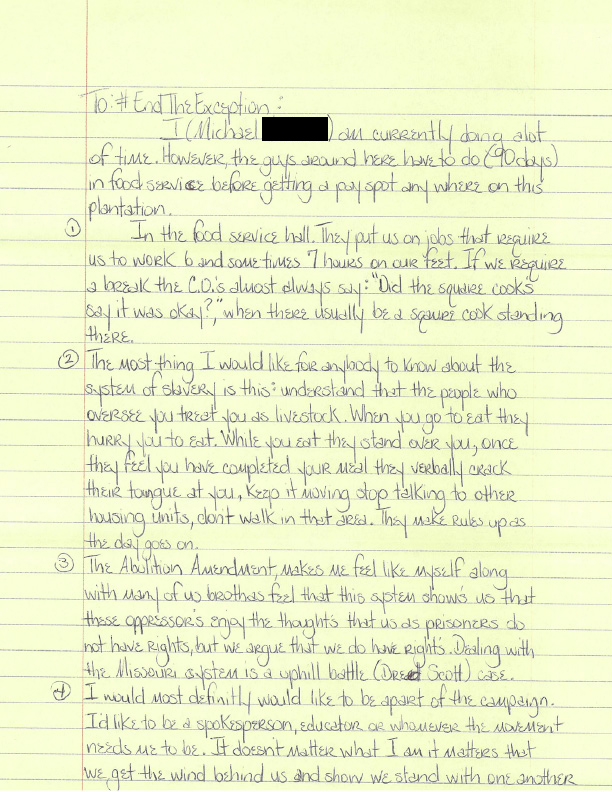 To: # EndTheException:
I (Michael ) am currently doing alot
of time. However, the guys around here have to do (90 days)
in food service before getting a pay spot any where on this
plantation.
① In the food service hall. They put us on jobs that require
us to work 6 and sometimes 7 hours on our feet. If we require
a break the C.O.'s almost always say: "Did the square cooks
say it was okay?," when there usually be a sqaure cook standing
there.
② The most thing I would like for anybody to know about the
system of slavery is this: understand that the people who
oversee you treat you as livestock. When you go to eat they
hurry you to eat. While you eat they stand over you, once
they feel you have completed your meal they verbally crack
their toungue at you, keep it moving stop talking to other
housing units, don't walk in that area. They make rules up as
the day goes on.
③ The Abolition Amendment, makes me feel like myself along
with many of us brothas feel that this system show's us that
these oppressor's enjoy the thought's that us as prisoners do
not have rights, but we argue that we do have right's. Dealing with
the Missouri system is a uphill battle (Dred Scott) case.
④ I would most definitly would like to be apart of the campaign.
I'd like to be a spokesperson, educator or whomever the movement
needs me to be. It doesn't matter what I am it matters that
we, get the wind behind us and show we stand with one another